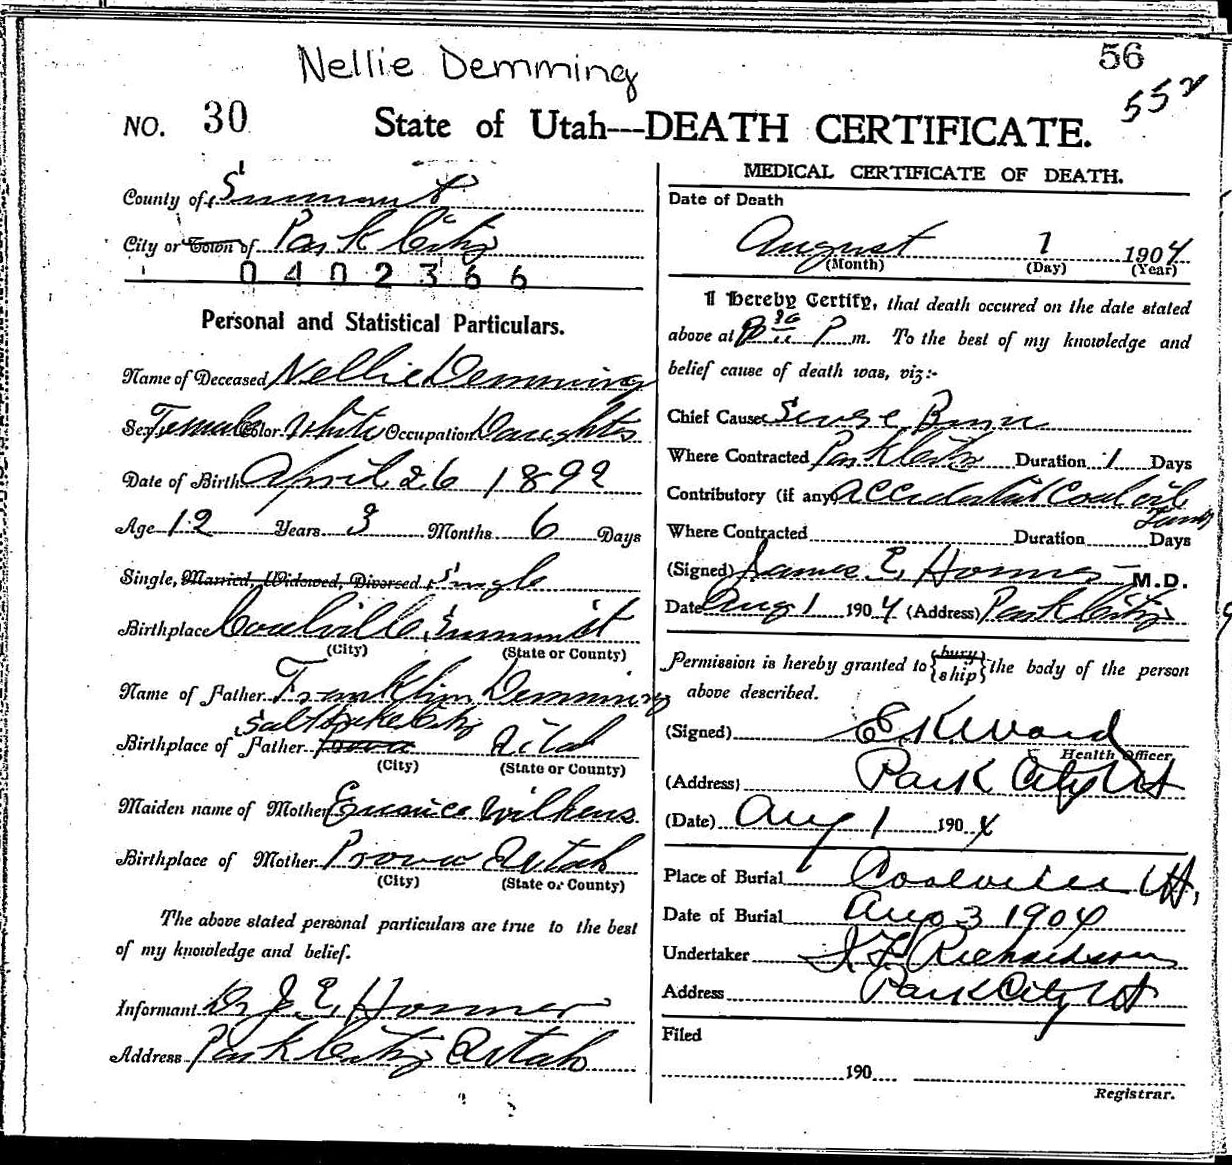 Nellie Demming
56
552
NO. 30 State of Utah---DEATH CERTIFICATE.
County of Summit
City or Town of Park City
0402366
Personal and Statistical Particulars.
Name of Deceased Nellie Demming
Sex Female Color White Occupation Daughter
Date of Birth April 26 1892
Age 12 Years 3 Months 6 Days
Single, Married, Widowed, Divorced Single
Birthplace Coalville, Summit
(City) (State or County)
Name of Father Franklin Demming
Salt Lake City
Birthplace of Father Utah
(City) (State or County)
Maiden name of Mother Eunice Wilkens
Birthplace of Mother Provo Utah
(City) (State or County)
The above stated personal particulars are true to the best
of my knowledge and belief.
Informant Dr J. E. Hosmer
Address Park City Utah
MEDICAL CERTIFICATE OF DEATH.
Date of Death
August 1 1904
(Month) (Day) (Year)
I Hereby Certify, that death occured on the date stated
above at P. m. To the best of my knowledge and
belief cause of death was, viz:-
Chief Cause Severe Burn
Where Contracted Park City Duration 1 Days
Contributory (if any) Accidental Coal oil
Where Contracted Duration Days
(Signed) James E. Hosmer M.D.
Date Aug 1 1904 (Address) Park City
Permission is hereby granted to {bury ship} the body of the person
above described.
(Signed) E K Ward
Health Officer
(Address) Park City Ut
(Date) Aug 1 1904
Place of Burial Coalville Ut,
Date of Burial Aug 3 1904
Undertaker Richardson
Address Park City Ut
Filed
190
Registrar.